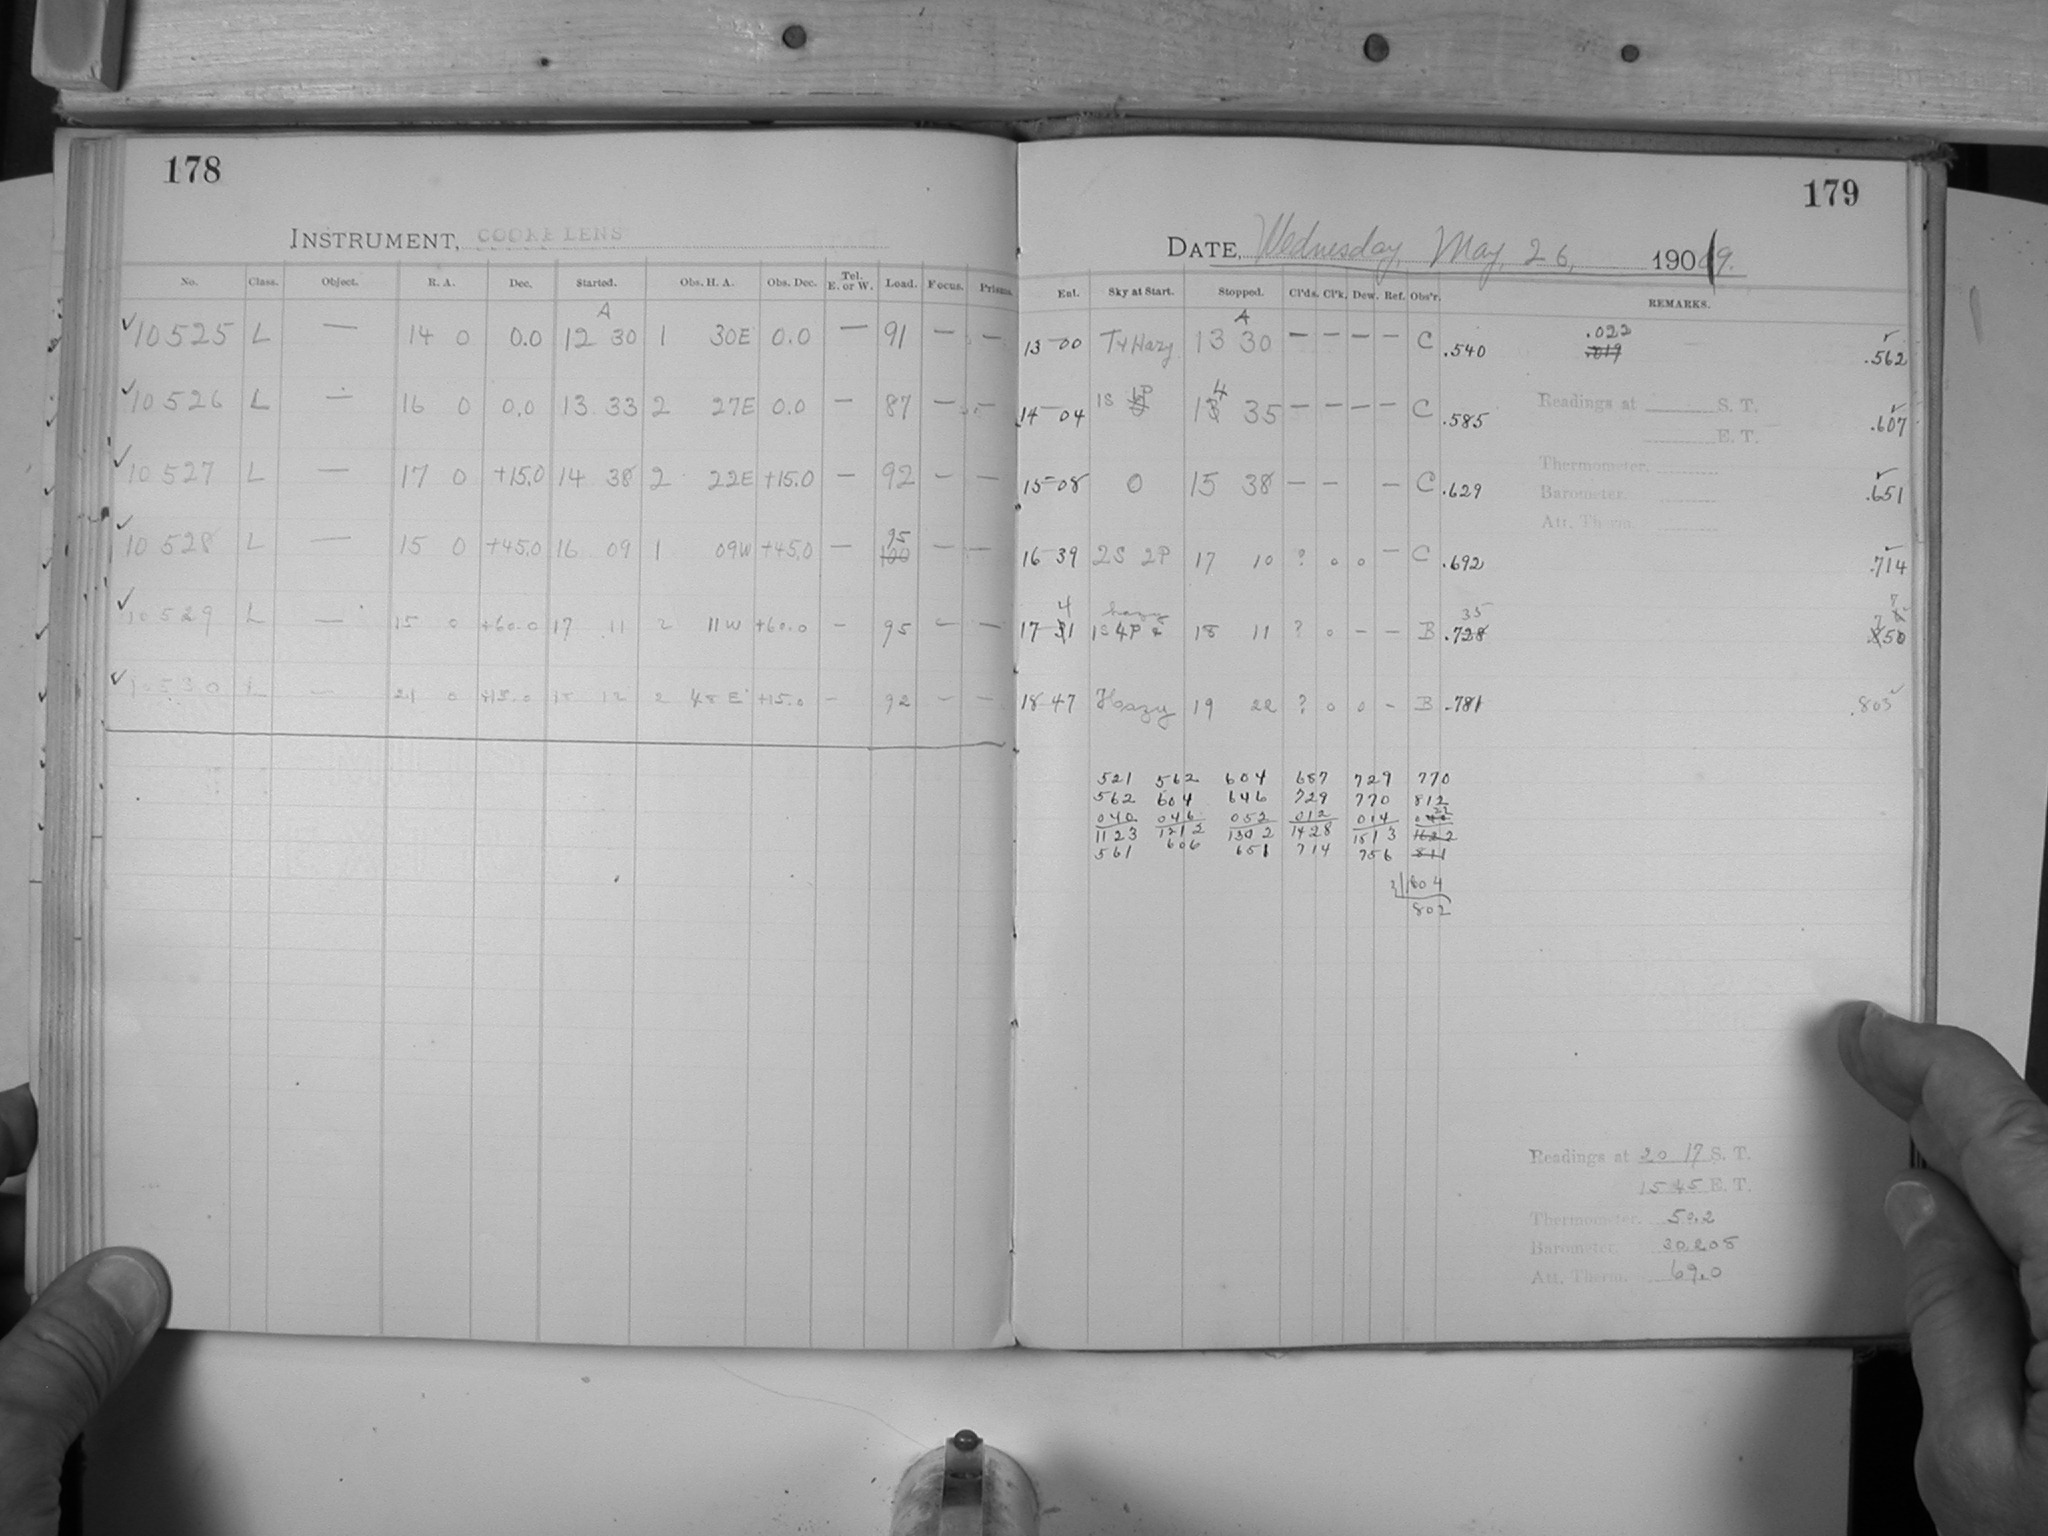 178
INSTRUMENT, COOKE LENS
No. Class. Object. R. A. Dec. Started. Obs. H. A. Obs. Dec. Tel. E. or W. Load. Focus. Prisms.
A
✓10525 L — 14 0 0.0 12 30 1 30E 0.0 — 91 — —
✓10526 L — 16 0 0.0 13 33 2 27E 0.0 — 87 — —
✓10527 L — 17 0 +15.0 14 38 2 22E +15.0 — 92 — —
95
✓10528 L — 15 0 +45.0 16 09 1 09W +45.0 — 100 — —
✓10529 L — 15 0 +60.0 17 11 2 11W +60.0 — 95 — —
✓10530 L — 21 0 +15.0 18 12 2 48E +15.0 — 92 — —
179
DATE, Wednesday, May, 26, 1909.
Ent. Sky at Start. Stopped. Cl'ds. Cl'k. Dew. Ref. Obs'r. REMARKS.
A
.022
13-00 T+Hazy 13 30 — — — — C .540 .019 .562
14-04 1S 1P 14 35 — — — — C .585 .607
Readings at S. T.
E. T.
15-08 0 15 38 — — — C .629 .651
Thermometer.
Barometer.
Att. Therm.
16-39 2S 2P 17 10 ? 0 0 — C .692 .714
4 hazy 35
17-31 1S 4P & 18 11 ? 0 — — B .728
18-47 Hazy 19 22 ? 0 0 — B .781 .803
521 562 604 687 729 770
562 604 646 729 770 812
040 046 052 012 014
1123 1212 1302 1428 1513 1622
561 606 651 714 756 811
2)1604
802
Readings at 20 17 S. T.
15 45 E. T.
Thermometer. 50.2
Barometer. 30.208
Att. Therm. 69.0